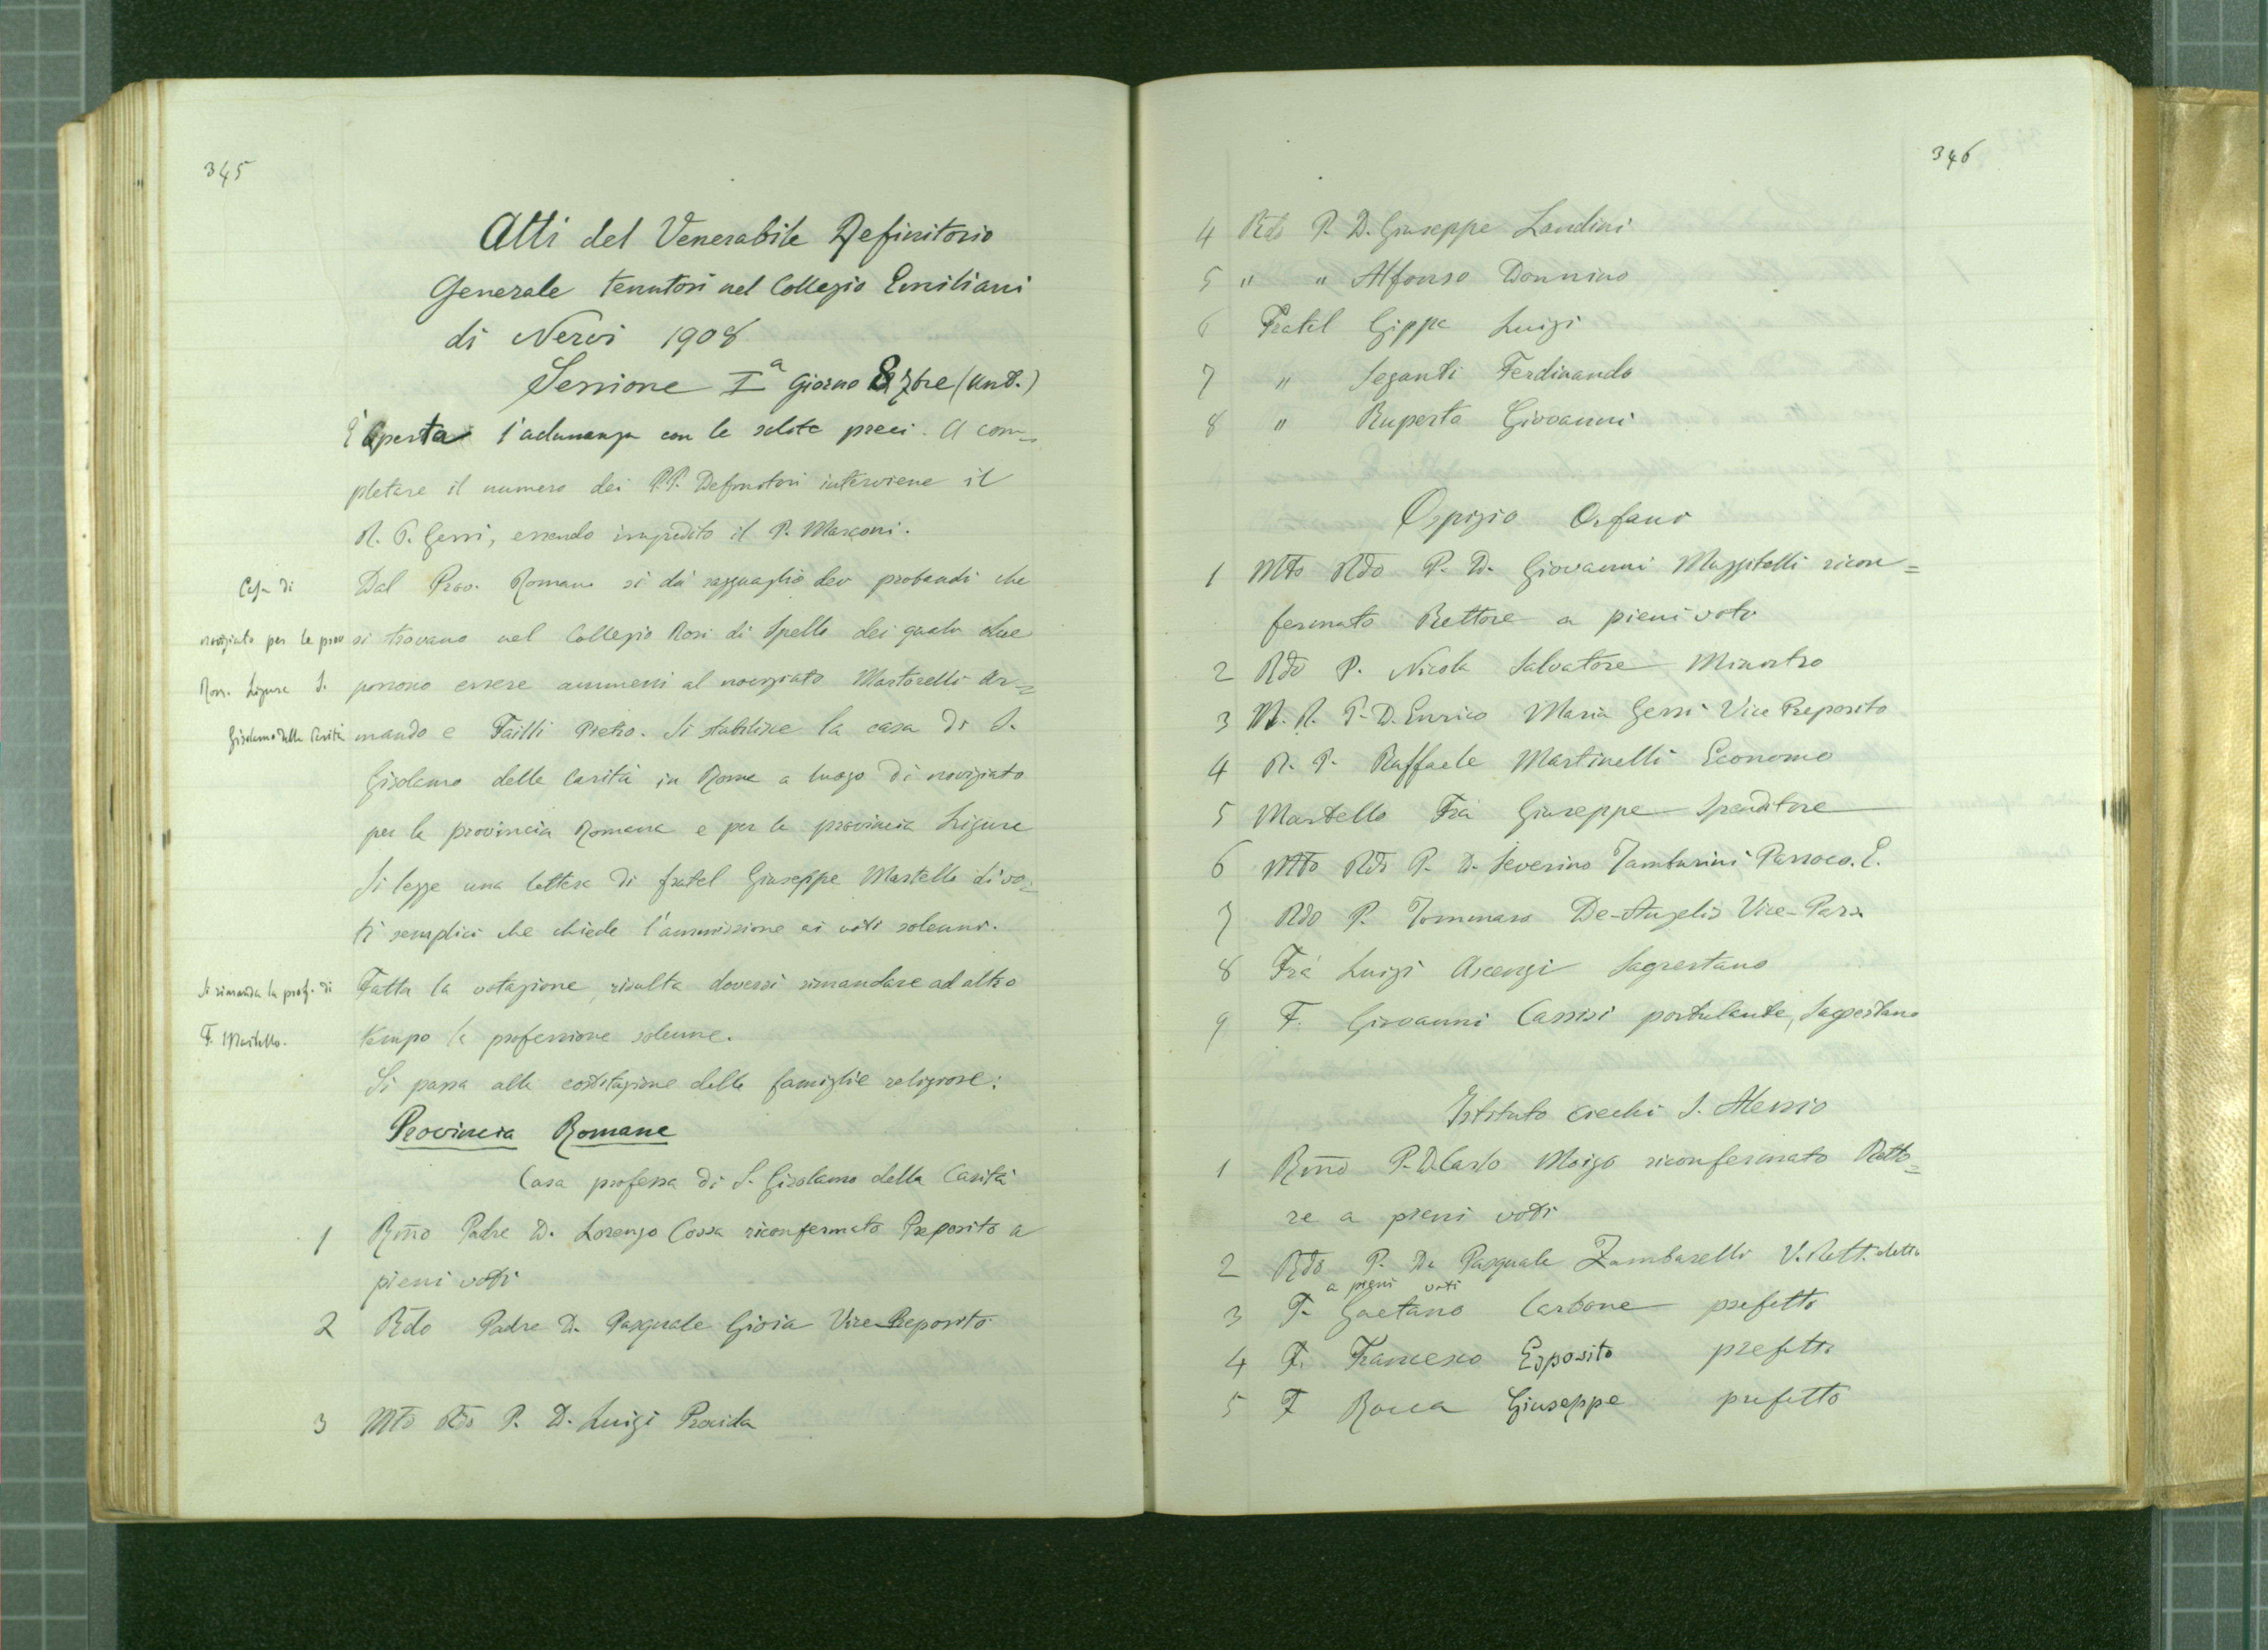 345
Atti del Venerabile Definitorio
Generale tenutosi nel Collegio Emiliani
di Nervi 1908
Sessione Iª Giorno 8 7bre (ant.)
È aperta l'adunanza con le solite preci. A com=
pletare il numero dei PP. Definitori interviene il
R. P. Gessi, essendo impedito il P. Marconi.
Dal Prov. Romano si dà ragguaglio dei probandi che
si trovano nel Collegio Rosi di Spello dei quali due
possono essere ammessi al noviziato Martorelli Ar=
mando e Failli Pietro. Si stabilisce la casa di S.
Girolamo della Carità in Roma a luogo di noviziato
per la provincia Romana e per la provincia Ligure
Si legge una lettera di fratel Giuseppe Martello di vo=
ti semplici che chiede l'ammissione ai voti solenni.
Fatta la votazione, risulta doversi rimandare ad altro
tempo la professione solenne.
Si passa alla costituzione delle famiglie religiose:
Casa di
noviziato per le prov
Rom. Ligure S.
Girolamo della Carità
Si rimanda la prof. di
F. Martello.
Provincia Romana
Casa professa di S. Girolamo della Carità
1 Rmo Padre D. Lorenzo Cossa riconfermato Preposito a
pieni voti
2 Rdo Padre D. Pasquale Gioia Vice Preposito
3 Mto Rdo P. D. Luigi Procida
346
4 Rdo P. D. Giuseppe Landini
5 " " Alfonso Donnino
6 Fratel Gippa Luigi
7 " Seganti Ferdinando
8 " Ruperto Giovanni
Ospizio Orfani
1 Mto Rdo P. D. Giovanni Muzzitelli ricon=
fermato Rettore a pieni voti
2 Rdo P. Nicola Salvatore Ministro
3 M. R. P. D. Enrico Maria Gessi Vice Preposito
4 R. P. Raffaele Martinelli Economo
5 Martello Fra Giuseppe Spenditore
6 Mto Rdo P. D. Severino Tamburini Parroco. E.
7 Rdo P. Tommaso De-Angelis Vice-Parr.
8 Fra Luigi Ascenzi Sagrestano
9 F. Giovanni Cassisi postulante, Sagrestano
Istituto ciechi S. Alessio
1 Rmo P. D. Carlo Moizo riconfermato Retto=
re a pieni voti
2 Rdo P. D. Pasquale Zambarelli V. Rett. eletto
a pieni voti
3 F. Gaetano Carbone prefetto
4 F. Francesco Esposito prefetto
5 F Rocca Giuseppe prefetto